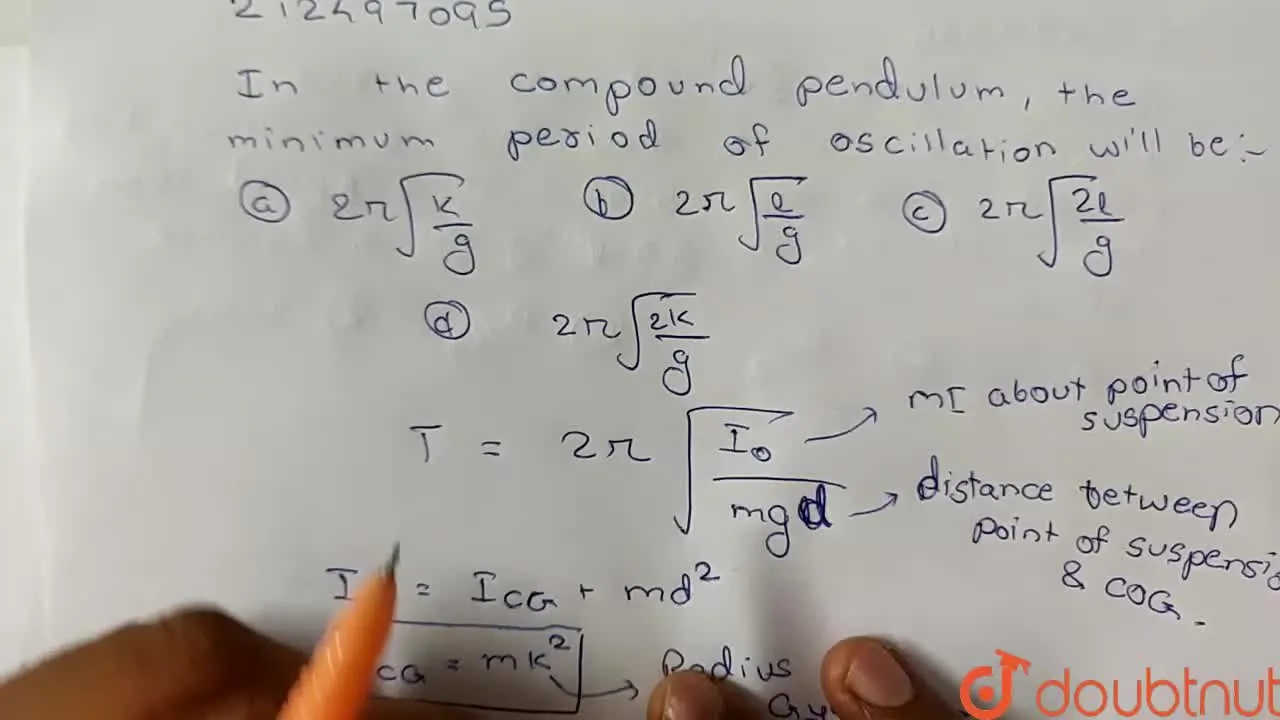 212497095
In the compound pendulum, the
minimum period of oscillation will be:-
(a) 2π√(k/g) (b) 2π√(l/g) (c) 2π√(2l/g)
(d) 2π√(2k/g)
T = 2π√(I₀/mgd)
MI about point of
suspension
distance between
point of suspensio
& COG.
I = I_CG + md²
CG = mk²
Radius
doubtnut